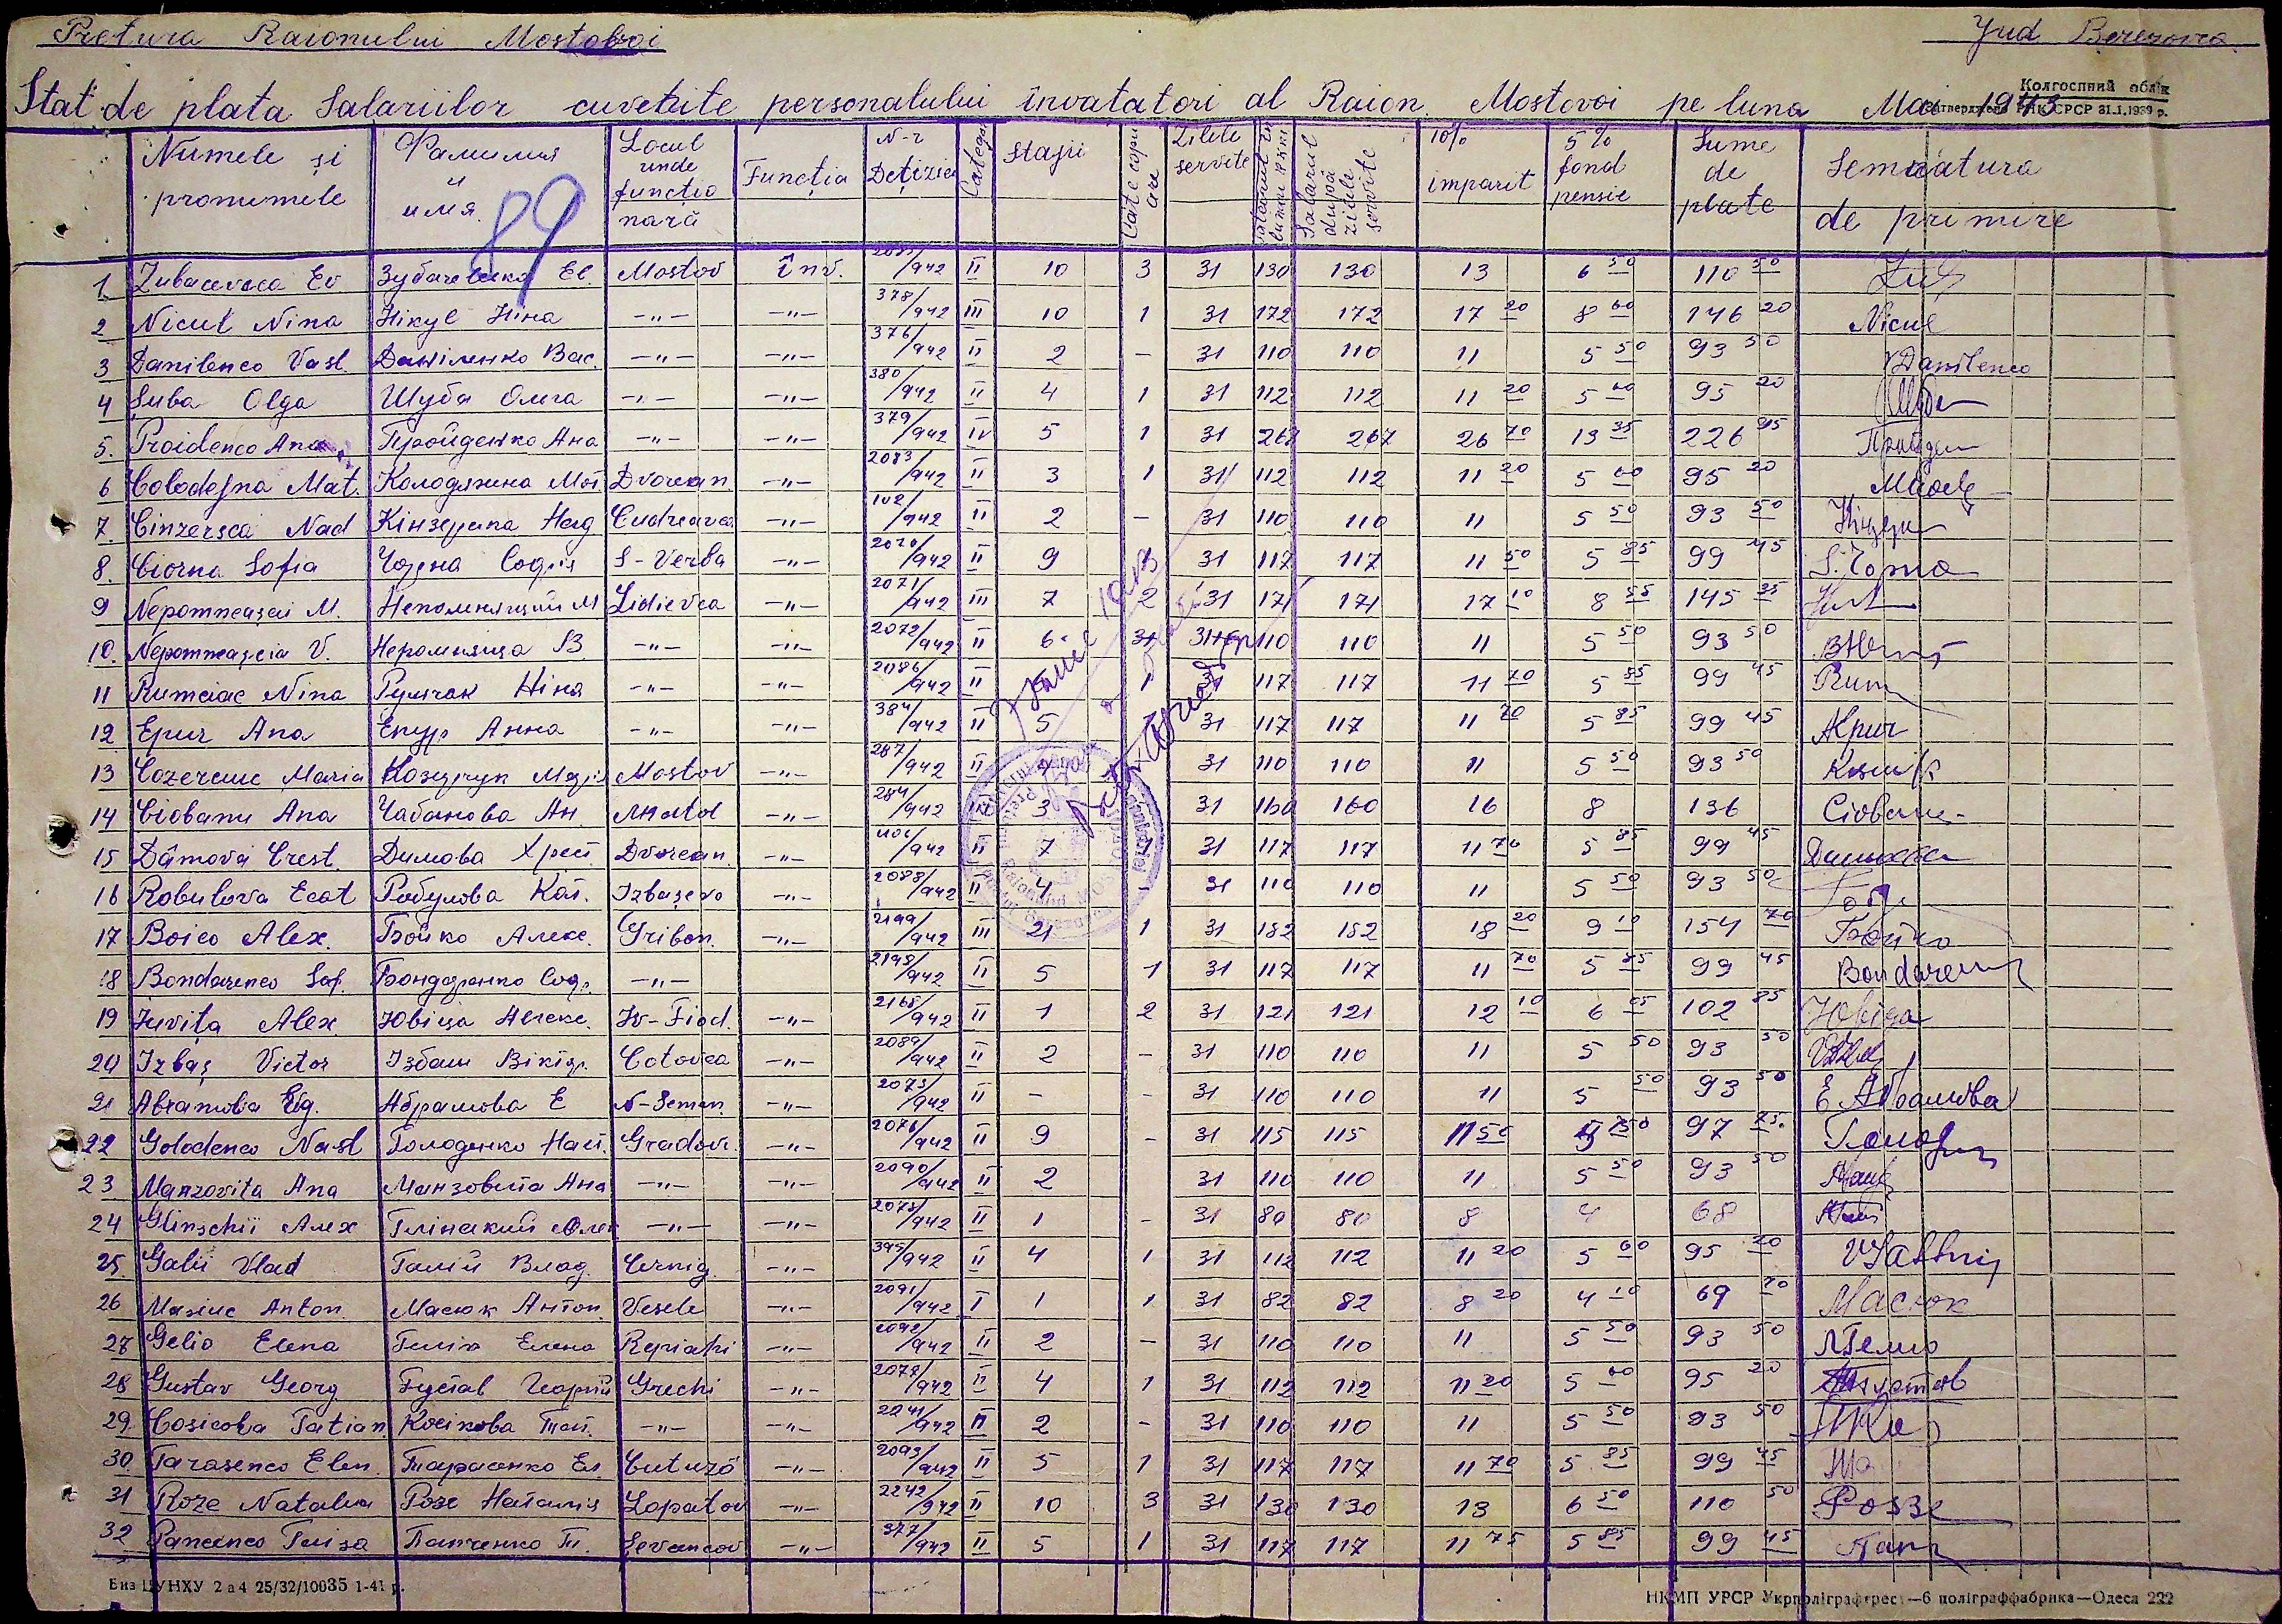 Pretura Raionului Mostovoi
Jud Berezovca
Колгоспний облік
Затверджено РНК СРСР 31.1.1939 р.
Stat de plata Salariilor cuvenite personalului învatatori al Raion Mostovoi pe luna Mai 1943
Numele și pronumele Фамилия и имя. Locul unde funcționară Funcția N-r Detiziei Categ. Stajii Câte copii are Zilele servite Salariul după zilele servite 10% imparit 5% fond pensie Suma de plate Semnatura de primire
89
1 Zubacevsca Ev Зубачевська Ев. Mostov înv. /942 II 10 3 31 130 130 13 6 50 110 50
2 Nicul Nina Нікул Ніна -"- -"- 378/942 III 10 1 31 172 172 17 20 8 60 146 20 Nicul
3 Danilenco Vasl. Даніленко Вас. -"- -"- 376/942 II 2 - 31 110 110 11 5 50 93 50 VDanilenco
4 Șuba Olga Шуба Олга -"- -"- 380/942 II 4 1 31 112 112 11 20 5 60 95 20
5. Proidenco Ana Пройденко Ана -"- -"- 379/942 IV 5 1 31 267 267 26 70 13 35 226 95
6 Colodejna Mat. Колодяжна Мот. Dvorean. -"- 2083/942 II 3 1 31 112 112 11 20 5 60 95 20
7. Cinzersca Nad Кінзерска Над Cudreavca -"- 102/942 II 2 - 31 110 110 11 5 50 93 50
8. Ciorna Sofia Чорна Софія S-Verba -"- 2070/942 II 9 31 117 117 11 50 5 85 99 45 S. Чорна
9 Nepomneașcii M. Непомнящий М Lidievca -"- 2071/942 III 7 2 31 171 171 17 10 8 55 145 35
10. Nepomneașcia V. Непомняща В -"- -"- 2072/942 II 6 31 110 110 11 5 50 93 50
11 Rumciac Nina Румчак Ніна -"- -"- 2086/942 II 1 31 117 117 11 70 5 85 99 45 Rum
12 Epur Ana Епур Анна -"- -"- 384/942 II 5 31 117 117 11 70 5 85 99 45 AEpur
13 Cozerciuc Maria Козерчук Марі Mostov -"- 287/942 II 31 110 110 11 5 50 93 50
14 Ciobanu Ana Чабанова Ан. Anatol -"- 284/942 3 31 160 160 16 8 136 Ciobanu
15 Dâmova Crest. Димова Хрест. Dvorean. -"- /942 II 7 31 117 117 11 70 5 85 99 45
16 Robulova Ecat Робулова Кат. Izbașevo -"- 2088/942 II 4 - 31 110 110 11 5 50 93 50
17 Boico Alex. Бойко Алекс. Gribon. -"- 2199/942 III 21 1 31 182 182 18 20 9 10 154 70 Бойко
18 Bondarenco Sof. Бондаренко Соф. -"- 2198/942 II 5 1 31 117 117 11 70 5 85 99 45 Bondarenco
19 Iuvița Alex. Ювіца Алекс. Iv-Fiod. -"- 2165/942 II 1 2 31 121 121 12 10 6 05 102 85 Ювіца
20 Izbaș Victor Ізбаш Віктор. Cotovca -"- 2089/942 II 2 - 31 110 110 11 5 50 93 50
21 Abramova Eug. Абрамова Е N-Seman -"- 2073/942 II - - 31 110 110 11 5 50 93 50 Е Абрамова
22 Golodenco Nast Голоденко Наст. Gradov. -"- 2076/942 II 9 - 31 115 115 11 50 5 75 97 75
23 Manzovita Ana Манзовита Ана -"- -"- 2090/942 II 2 31 110 110 11 5 50 93 50
24 Glinschii Алех Глінский Олек -"- -"- 2075/942 II 1 - 31 80 80 8 4 68
25. Galii Vlad Галій Влад. Cernig. -"- 395/942 II 4 1 31 112 112 11 20 5 60 95 20
26 Masiuc Anton. Масюк Антон. Vesele -"- 2091/942 I 1 1 31 82 82 8 20 4 10 69 70 Масюк
27 Gelio Elena Геліо Елена Repiahi -"- 2092/942 II 2 - 31 110 110 11 5 50 93 50
28 Gustav Georg Густав Георгій Grechi -"- 2078/942 II 4 1 31 112 112 11 20 5 60 95 20 Густав
29. Cosicova Tatian. Косікова Тат. -"- -"- 2241/942 II 2 - 31 110 110 11 5 50 93 50
30. Tarasenco Elen. Тарасенко Ел Cutuzo -"- 2093/942 II 5 1 31 117 117 11 70 5 85 99 45
31 Roze Natalia Розе Наталія Lopatov -"- 2242/942 II 10 3 31 130 130 13 6 50 110 50 Розе
32 Pancenco Taisa Панченко Т. Șevcencov -"- 377/942 II 5 1 31 117 117 11 75 5 85 99 45
Биз ЦУНХУ 2 а 4 25/32/10035 1-41 р.
НКМП УРСР Укрполіграфтрест—6 поліграффабрика—Одеса 222